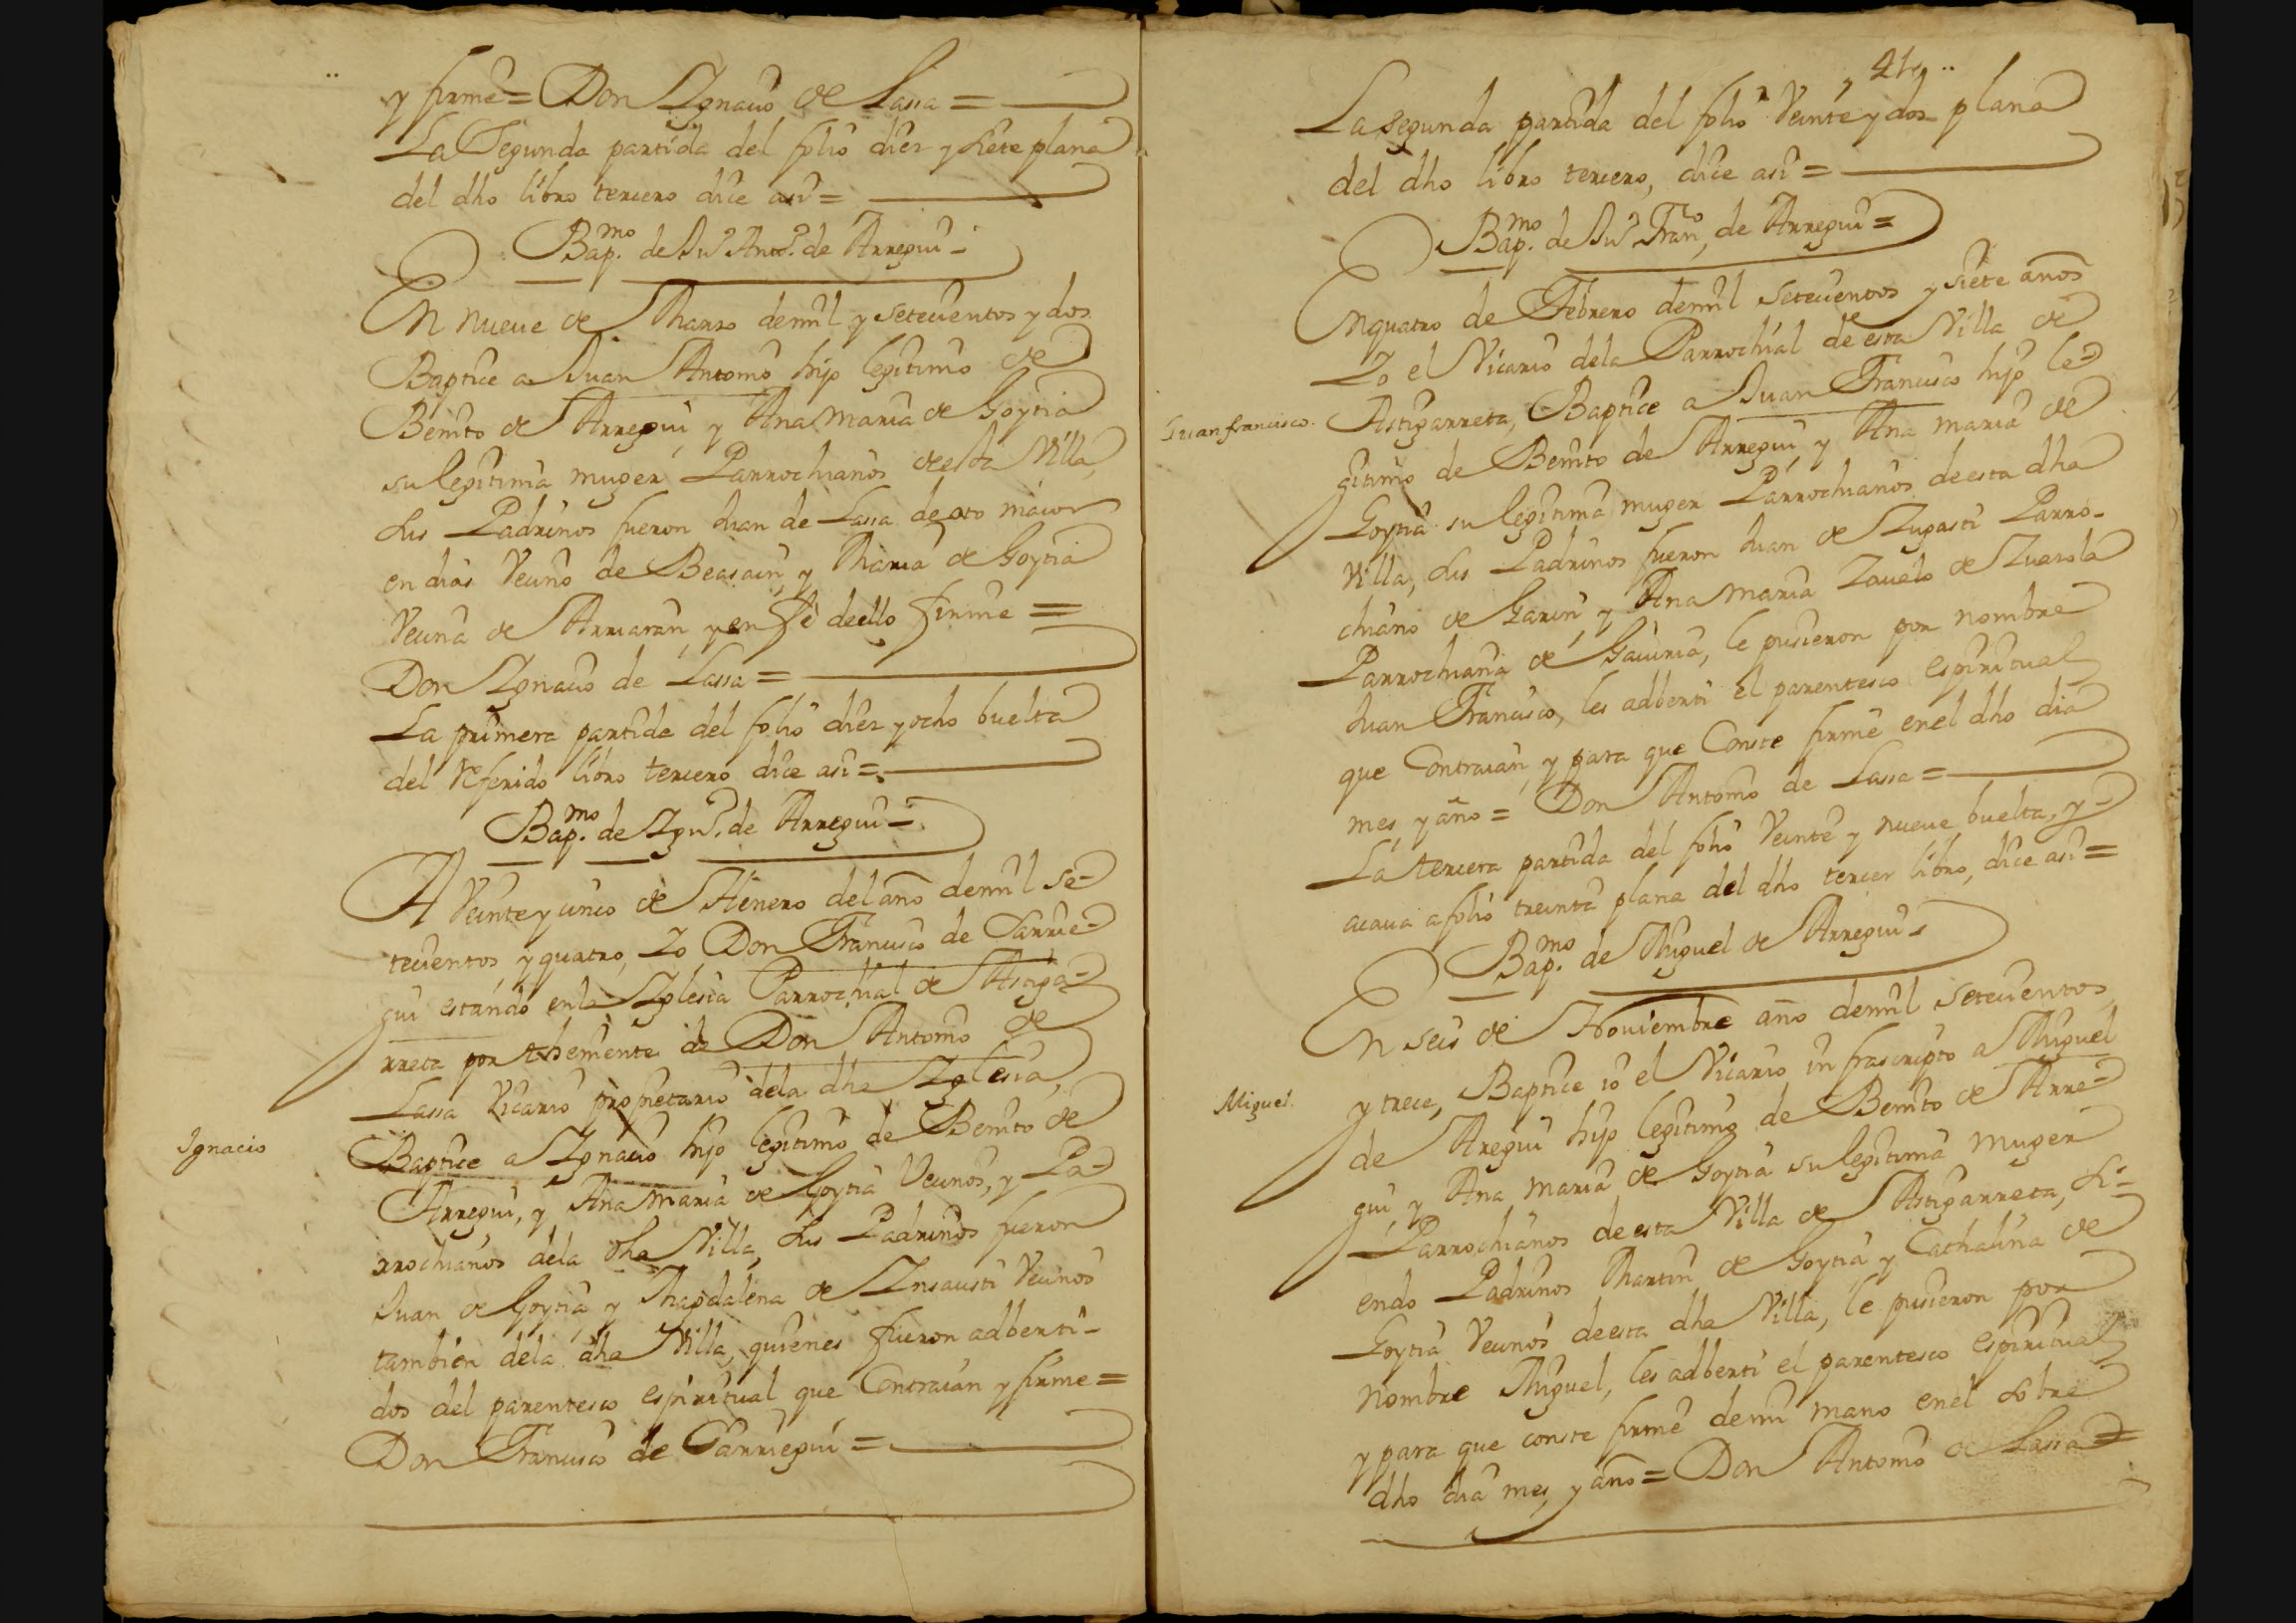 y firmé = Don Ignacio de Lassa =
La Segunda partida del folio diez y siete plana
del dho libro tercero dice asi =
Bap.mo de Jun Anto. de Arregui =
En nueve de Marzo de mil y setecientos y dos
Baptice a Juan Antonio hijo legitimo de
Benito de Arregui y Ana Maria de Goytia
su legitima muger Parrochianos de esta Villa,
sus Padrinos fueron Juan de Lassa de oto maior
en dias Vecino de Beasain, y Maria de Goytia
Vecina de Arriaran, y en fé de ello firmé =
Don Ignacio de Lassa =
La primera partida del folio diez y ocho buelta
del referido libro tercero dice asi =
Bap.mo de Igno. de Arregui =
A Veinte y cinco de Henero del año de mil se-
tecientos y quatro, Yo Don Francisco de Sarrie-
gui estando en la Iglesia Parrochial de Astiga-
rreta por thenmente de Don Antonio de
Lassa Vicario propietario de la dha Iglesia,
Ignacio
Baptice a Ignacio hijo legitimo de Benito de
Arregui, y Ana Maria de Goytia Vecinos, y Pa-
rrochianos de la dha Villa, sus Padrinos fueron
Juan de Goytia y Magdalena de Insausti Vecinos
tambien de la dha Villa, quienes fueron adberti-
dos del parentesco espiritual que Contraian y firme =
Don Francisco de Sarriegui =
24
La segunda partida del folio Veinte y dos plana
del dho libro tercero, dice asi =
Bap.mo de Jun Franco, de Arregui =
En quatro de Febrero de mil setecientos y siete años
Yo el Vicario de la Parrochial de esta Villa de
Juan francisco.
Astigarreta, Baptice a Juan Francisco hijo le-
gitimo de Benito de Arregui, y Ana maria de
Goytia su legitima muger Parrochianos de esta dha
Villa, sus Padrinos fueron Juan de Zugasti Parro-
chiano de Garin, y Ana Maria Zavalo de Zuazola
Parrochiana de Gaviria, le pusieron por nombre
Juan Francisco, les adberti el parentesco espiritual
que Contraian, y para que Conste firmé en el dho dia
mes, y año = Don Antonio de Lassa =
La tercera partida del folio Veinte y nueve buelta, y
acava a folio treinta plana del dho tercer libro, dice asi =
Bap.mo de Miguel de Arregui =
En seis de Noviembre año de mil setecientos
Miguel.
y trece, Baptice io el Vicario infrascripto a Miguel
de Aregui hijo legitimo de Benito de Arre-
gui y Ana maria de Goytia su legitima muger
Parrochianos de esta Villa de Astigarreta, si-
endo Padrinos Martin de Goytia y Cathalina de
Goytia Vecinos de esta dha Villa, le pusieron por
nombre Miguel, les adberti el parentesco espiritual
y para que conste firmé de mi mano en el sobre
dho dia mes, y año = Don Antonio de Lassa =